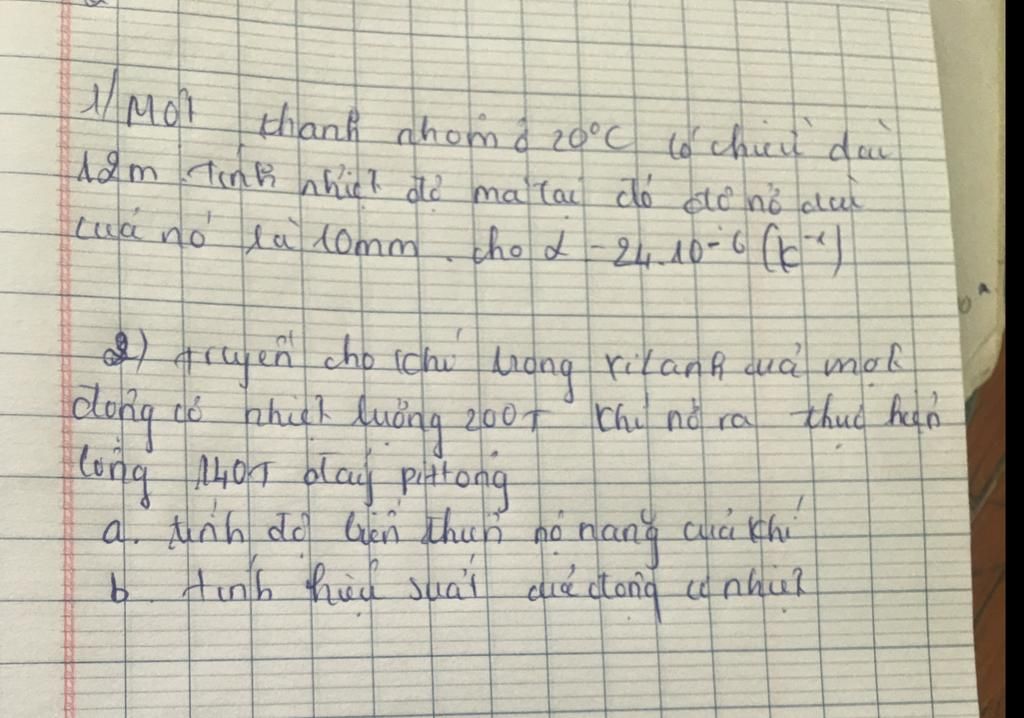 1/ Một thanh nhôm ở 20°C có chiều dài
12m. Tính nhiệt độ mà tại đó độ nở dài
của nó là 10mm. cho α = 24.10⁻⁶ (k⁻¹)
2) truyền cho khí trong xilanh của một
động cơ nhiệt lượng 200J khí nở ra thực hiện
công 140J đẩy pittong
a. tính độ biến thiên nộ nang của khí
b. tính hiệu suất của động cơ nhiệt